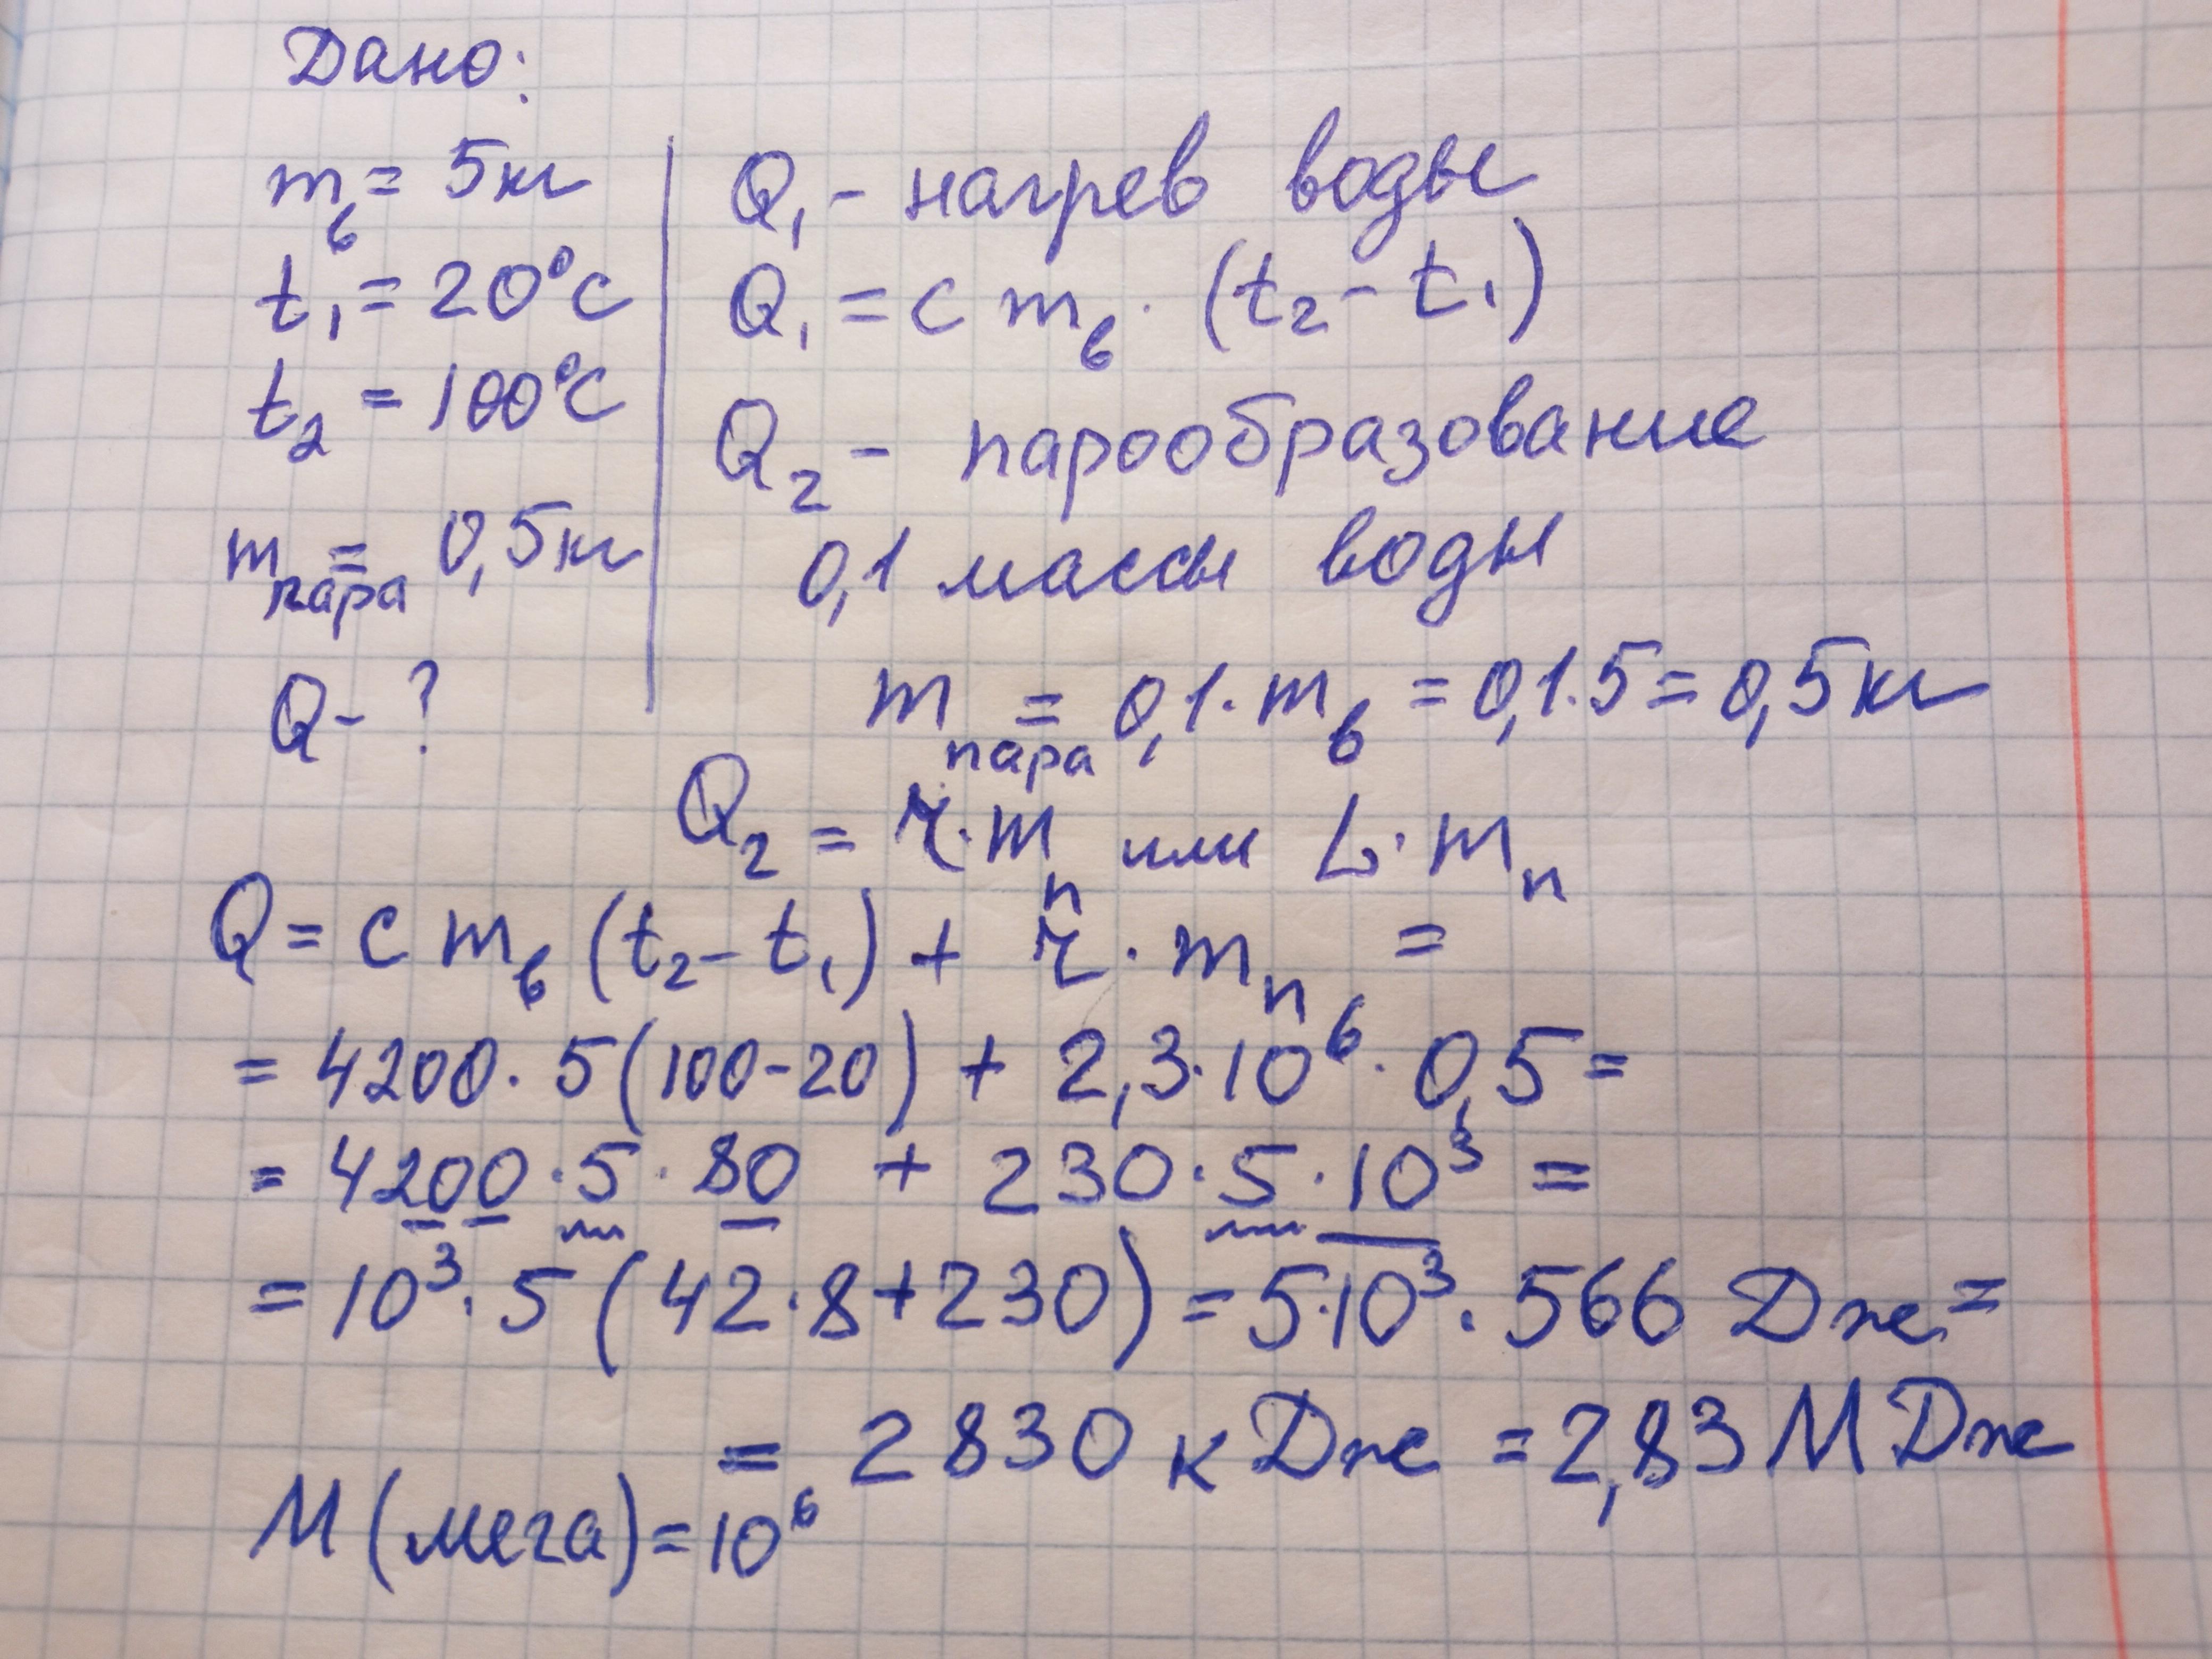 Дано:
m в = 5кг
t₁ = 20°C
t₂ = 100°C
m пара = 0,5кг
Q - ?
Q₁ - нагрев воды
Q₁ = c m в · (t₂ - t₁)
Q₂ - парообразование
0,1 массы воды
m пара = 0,1 · m в = 0,1 · 5 = 0,5кг
Q₂ = r · m п или L · m п
Q = c m в (t₂ - t₁) + r · m п =
= 4200 · 5 (100 - 20) + 2,3 · 10⁶ · 0,5 =
= 4200 · 5 · 80 + 230 · 5 · 10³ =
= 10³ · 5 (42 · 8 + 230) = 5 · 10³ · 566 Дж =
= 2830 кДж = 2,83 МДж
М (мега) = 10⁶